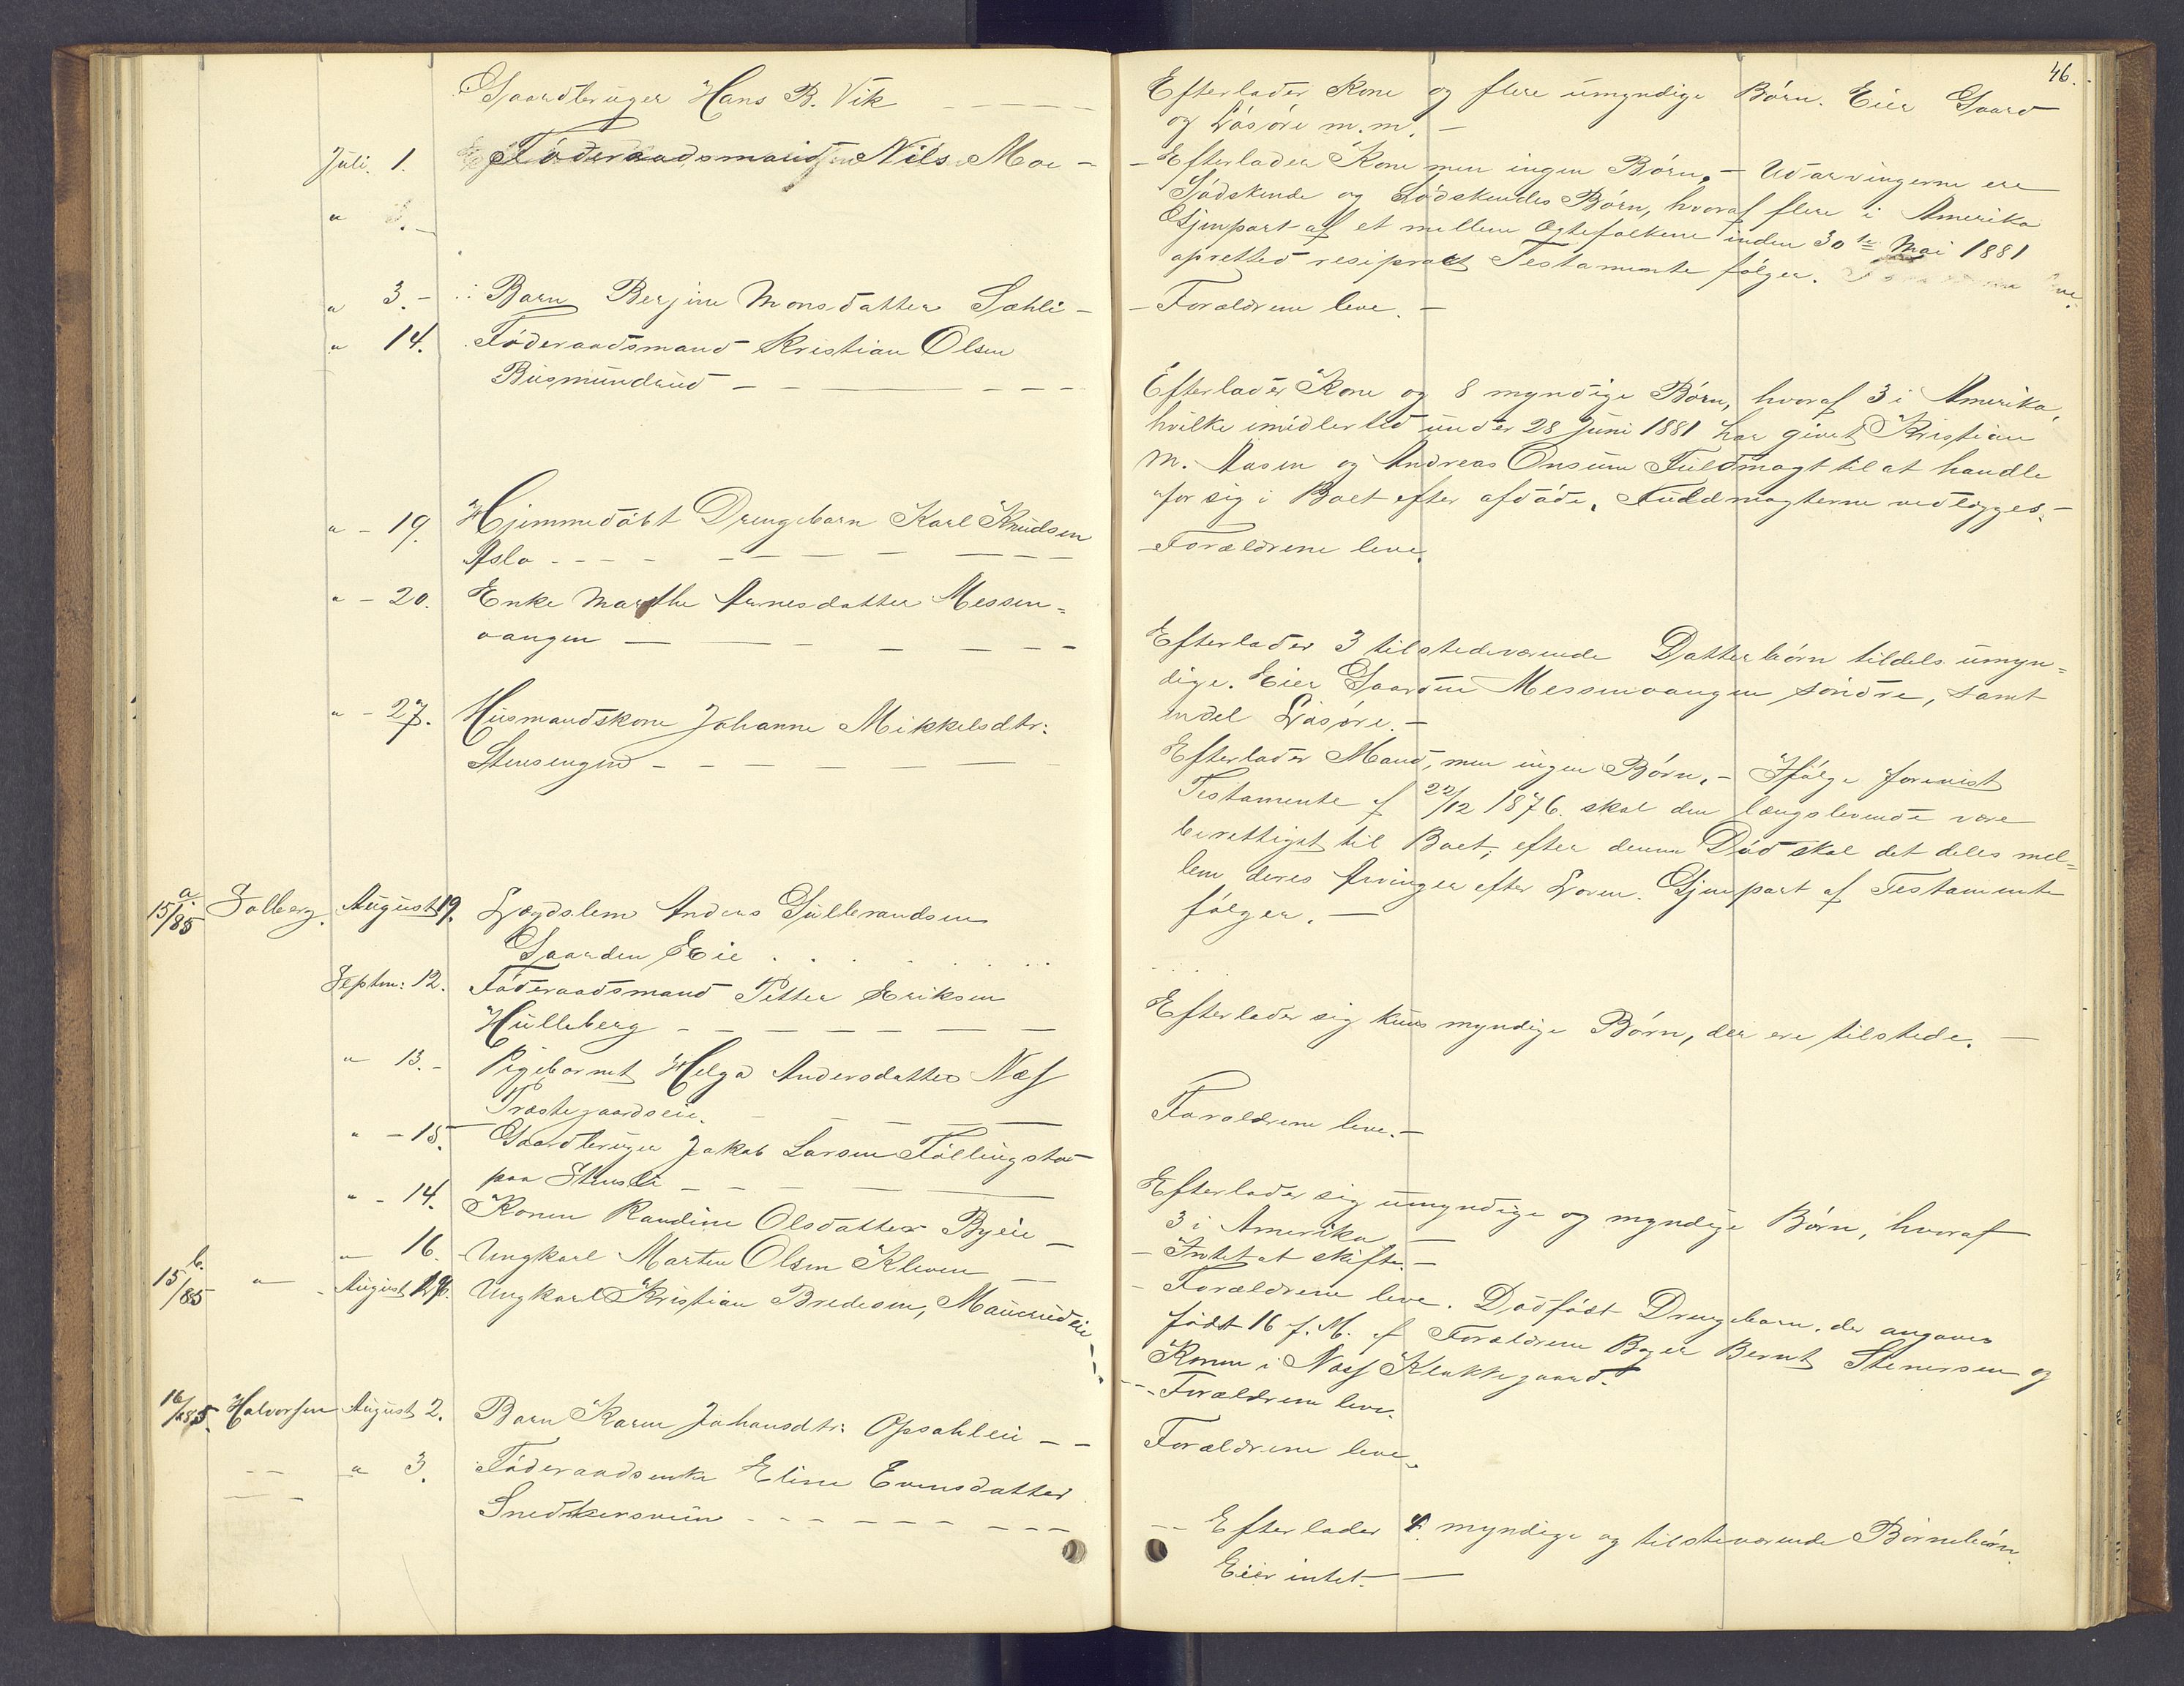 46.
Gaardbruger Hans B. Vik
Juli. 1. Føderaadsmand Nils Moe -
" 3. -
" 3. - Barn Berjine Monsdatter Sæhli -
" 14. Føderaadsmand Kristian Olsen
Busmundrud -
" - 19. Hjemmedøbt Drengebarn Karl Knudsen
Asla - - -
" - 20. Enke Marthe Arnesdatter Messen=
vangen -
" - 27. Husmandskone Johanne Mikkelsdtr:
Stensengen -
a
15/85 Solberg. August 19. Lægdslem Anders Gulbrandsen
Gaarden Eie . . .
Septm: 12. Føderaadsmand Petter Eriksen
Hulleberg -
" 13. - Pigebarnet Helga Andersdatter Næs
Præstegaardseie. -
" - 15. Gaardbruger Jakob Larsen Føllingstad
paa Stensli -
" - 14. Konen Randine Olsdatter Byeie -
" 16. Ungkarl Marten Olsen Kleven -
b.
15/85 " August 19. Ungkarl Kristian Bredesen, Maurudeie
16/85. Halvorsen August 2. Barn Karen Johansdtr: Opsahleie - -
- - " 3. Føderaadsenke Eline Evensdatter
Snedkersveen - - -
Efterlader Kone og flere umyndige Børn. Eier Gaard
og Løsøre m.m. -
- Efterlader Kone men ingen Børn. - Udarvingerne ere
Sødskende og Sødskendes Børn, hvoraf flere i Amerika
Gjenpart af et mellem Ægtefolkene under 30te Mai 1881
oprettet resiprokt Testamente følger.
- Forældrene leve. -
Efterlader Kone og 8 myndige Børn, hvoraf 3 i Amerika,
hvilke imidlertid under 28 Juni 1881 har givet Kristian
M. Aasen og Andreas Onsum Fuldmagt til at handle
for sig i Boet efter afdøde. Fuldmagterne vedlægges. -
- Forældrene leve.
Efterlader 3 tilstedeværende Datterbørn tildels umyn=
dige. Eier Gaarden Messenvangen søndre, samt
endel Løsøre. -
Efterlader Mand, men ingen Børn. - Ifølge forevist
Testamente af 22/12 1876. skal den længslevende være
berettiget til Boet; efter dennes Død skal det deles mel=
lem deres Arvinger efter Loven. Gjenpart af Testamente
følger. -
Efterlader sig kuns myndige Børn, der ere tilstede. -
Forældrene leve. -
Efterlader sig umyndige og myndige Børn, hvoraf
3 i Amerika -
- Intet at skifte. -
- Forældrene leve. Dødfødt Drengebarn, der angaves
født 16 f. M. af Forældrene Bager Bernt Stenersen og
Konen i Næs Klokkegaard. -
- - Forældrene leve.
Forældrene leve.
- - Efterlader 4 myndige og tilsteværende Børnebørn
Eier intet. -